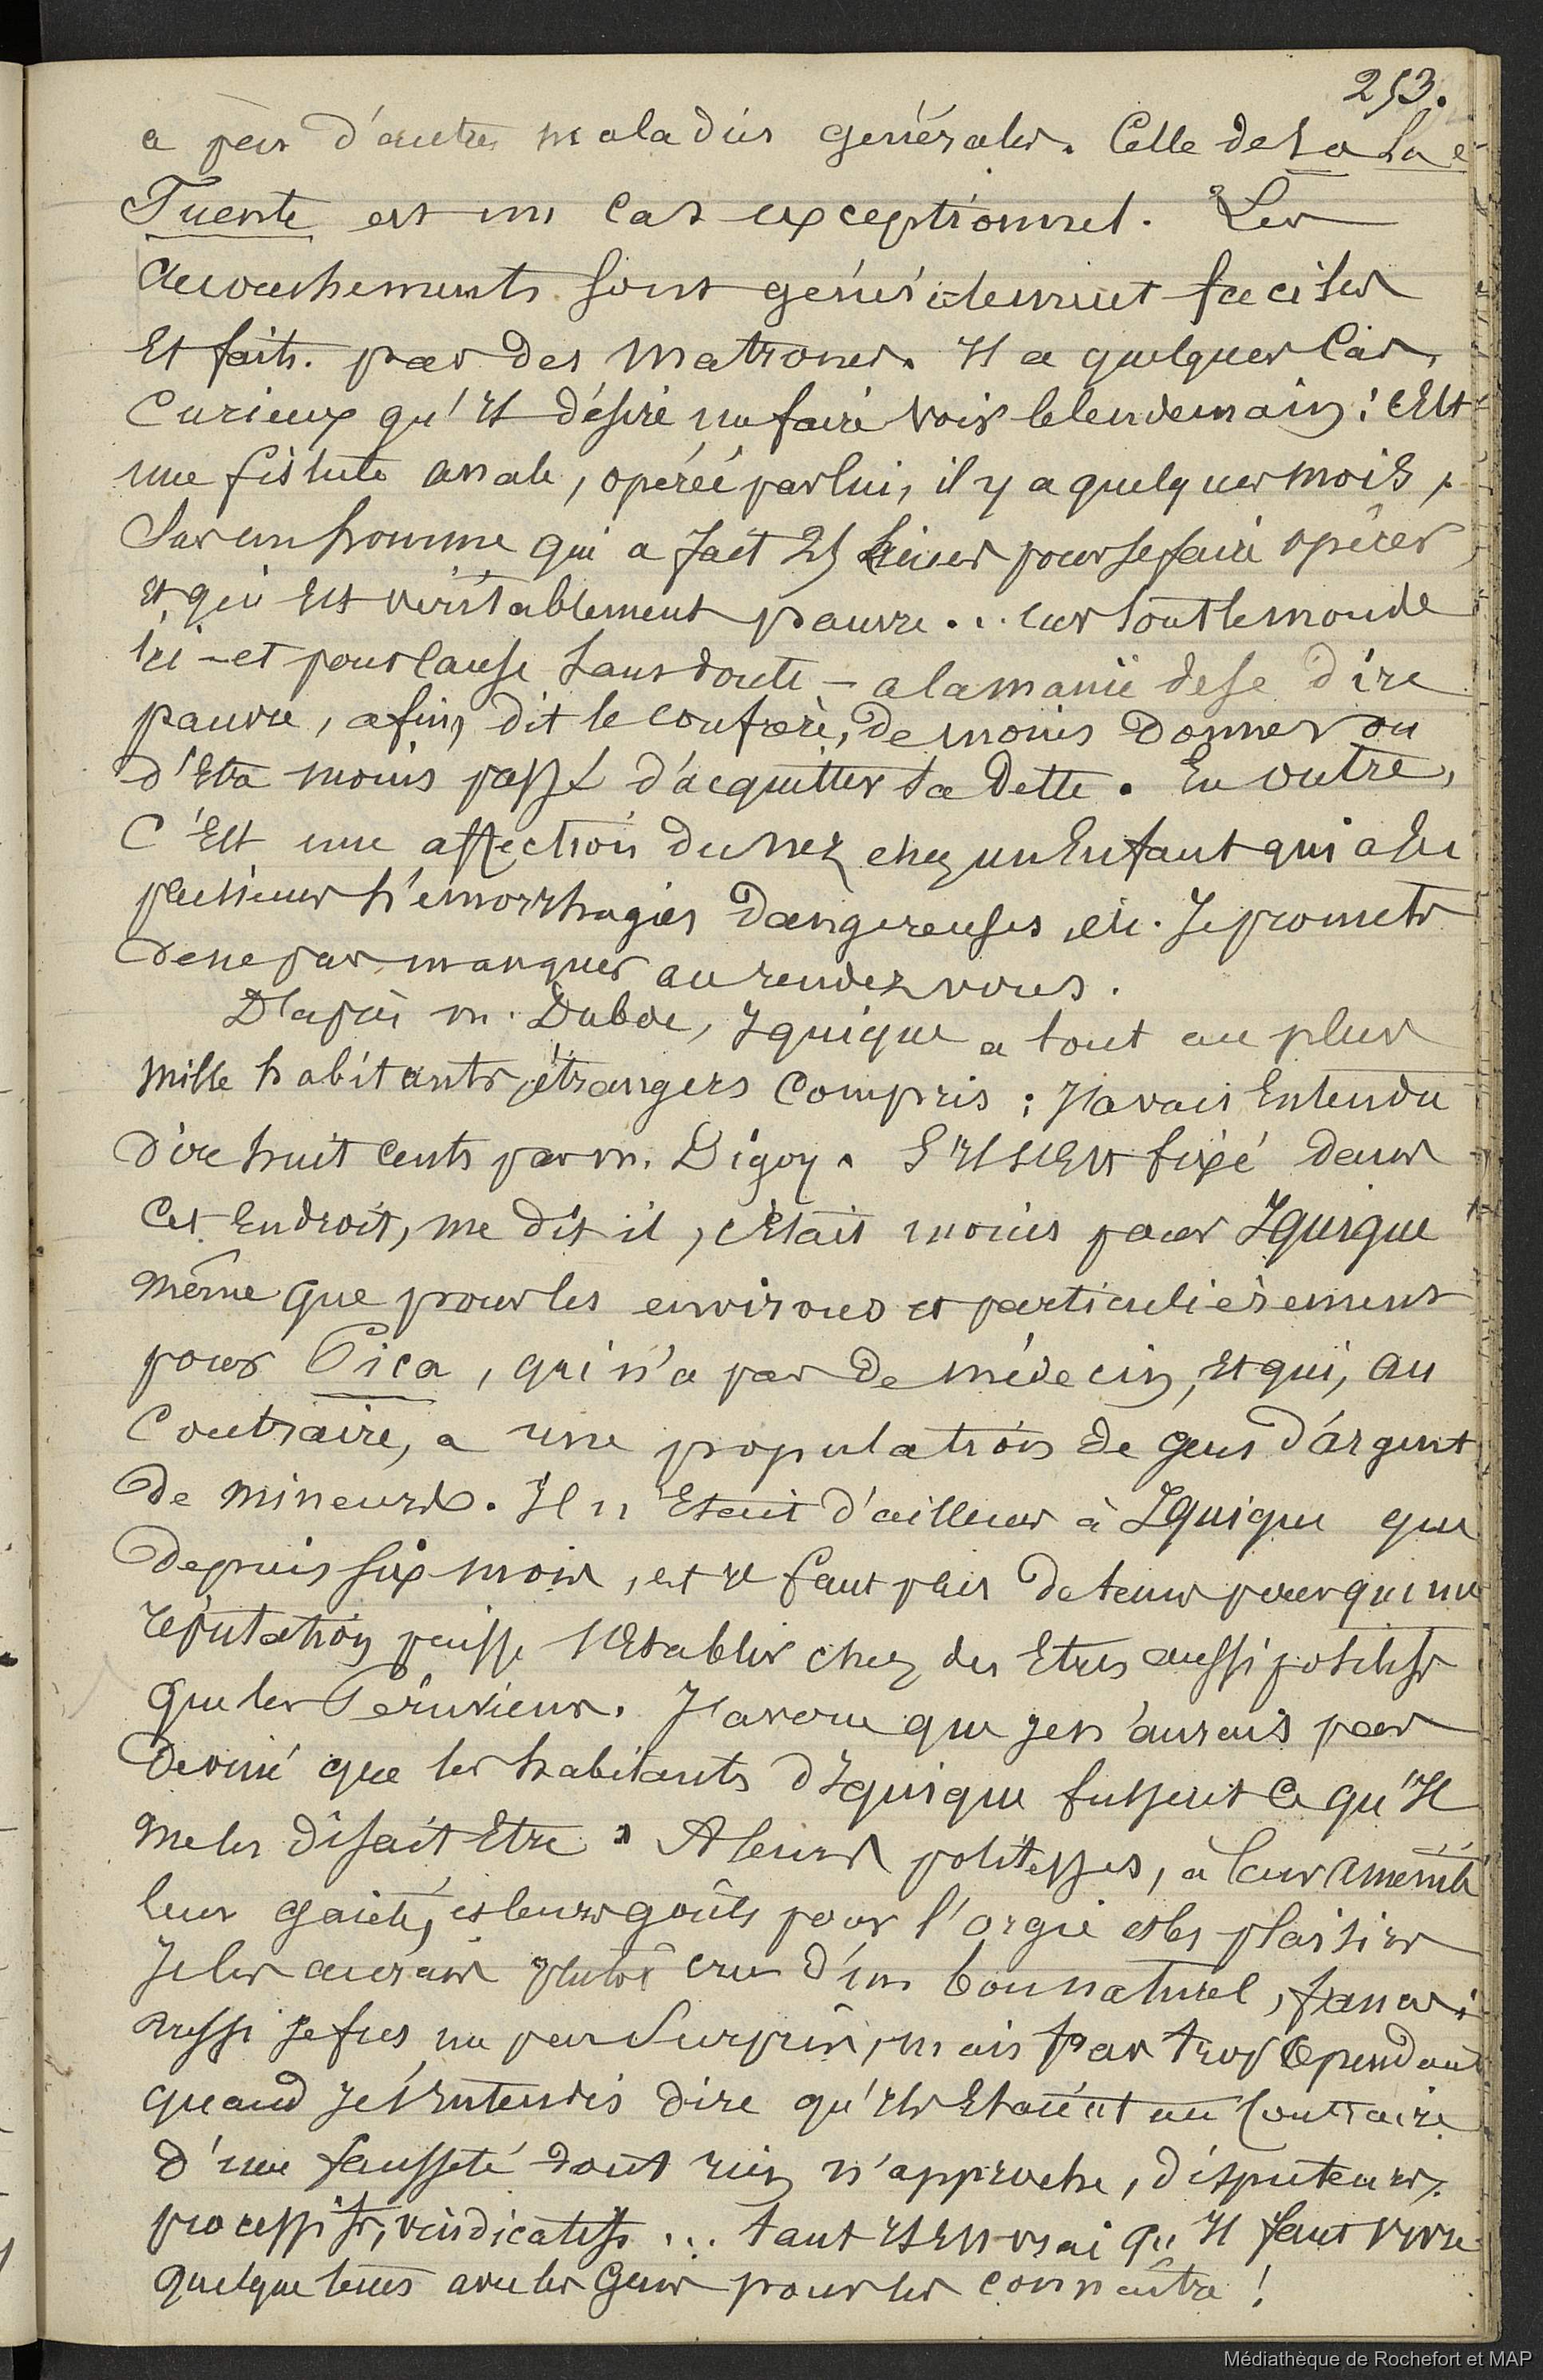 253.
a peu d'autres maladies générales. Celle de La La
Fuente est un cas exceptionnel. Les
accouchements sont généralement faciles
et faits par des matrones. Il a quelques cas
curieux qu'il désire me faire voir le lendemain : c'est
une fistule anale, opérée par lui, il y a quelques mois,
sur un homme qui a fait 25 lieues pour se faire opérer
et qui est véritablement pauvre... car tout le monde
ici - et pour cause sans doute - a la manie de se dire
pauvre, afin, dit le confrère, de moins donner ou
d'être moins pressé d'acquitter sa dette. En outre,
c'est une affection du nez chez un enfant qui a eu
plusieurs hémorrhagies dangereuses, etc. Je promets
de ne pas manquer au rendez vous.
D'après m. Duboc, Iquique a tout au plus
mille habitants, étrangers compris ; j'avais entendu
dire huit cents par m. Digoy. S'il s'est fixé dans
cet endroit, me dit il, c'était moins pour Iquique
même que pour les environs et particulièrement
pour Pica, qui n'a pas de médecin, et qui, au
contraire, a une population de gens d'argent
de mineurs. Il n'était d'ailleurs à Iquique que
depuis six mois, et il faut plus de tems pour qu'une
réputation puisse s'établir chez des êtres aussi positifs
que les Péruviens. J'avoue que je n'aurais pas
deviné que les habitants d'Iquique fussent ce qu'il
me les disait être. A leurs politesses, à leur aménité
leur gaieté, et leurs goûts pour l'orgie et les plaisirs
je les aurais plutôt crus d'un bon naturel, francs :
aussi je fus un peu surpris, mais pas trop cependant
quand je l'entendis dire qu'ils étaient au contraire
d'une fausseté dont rien n'approche, disputeurs,
processifs, vindicatifs... tant il est vrai qu'il faut vivre
quelque tems avec les gens pour les connaître !
Médiathèque de Rochefort et MAP